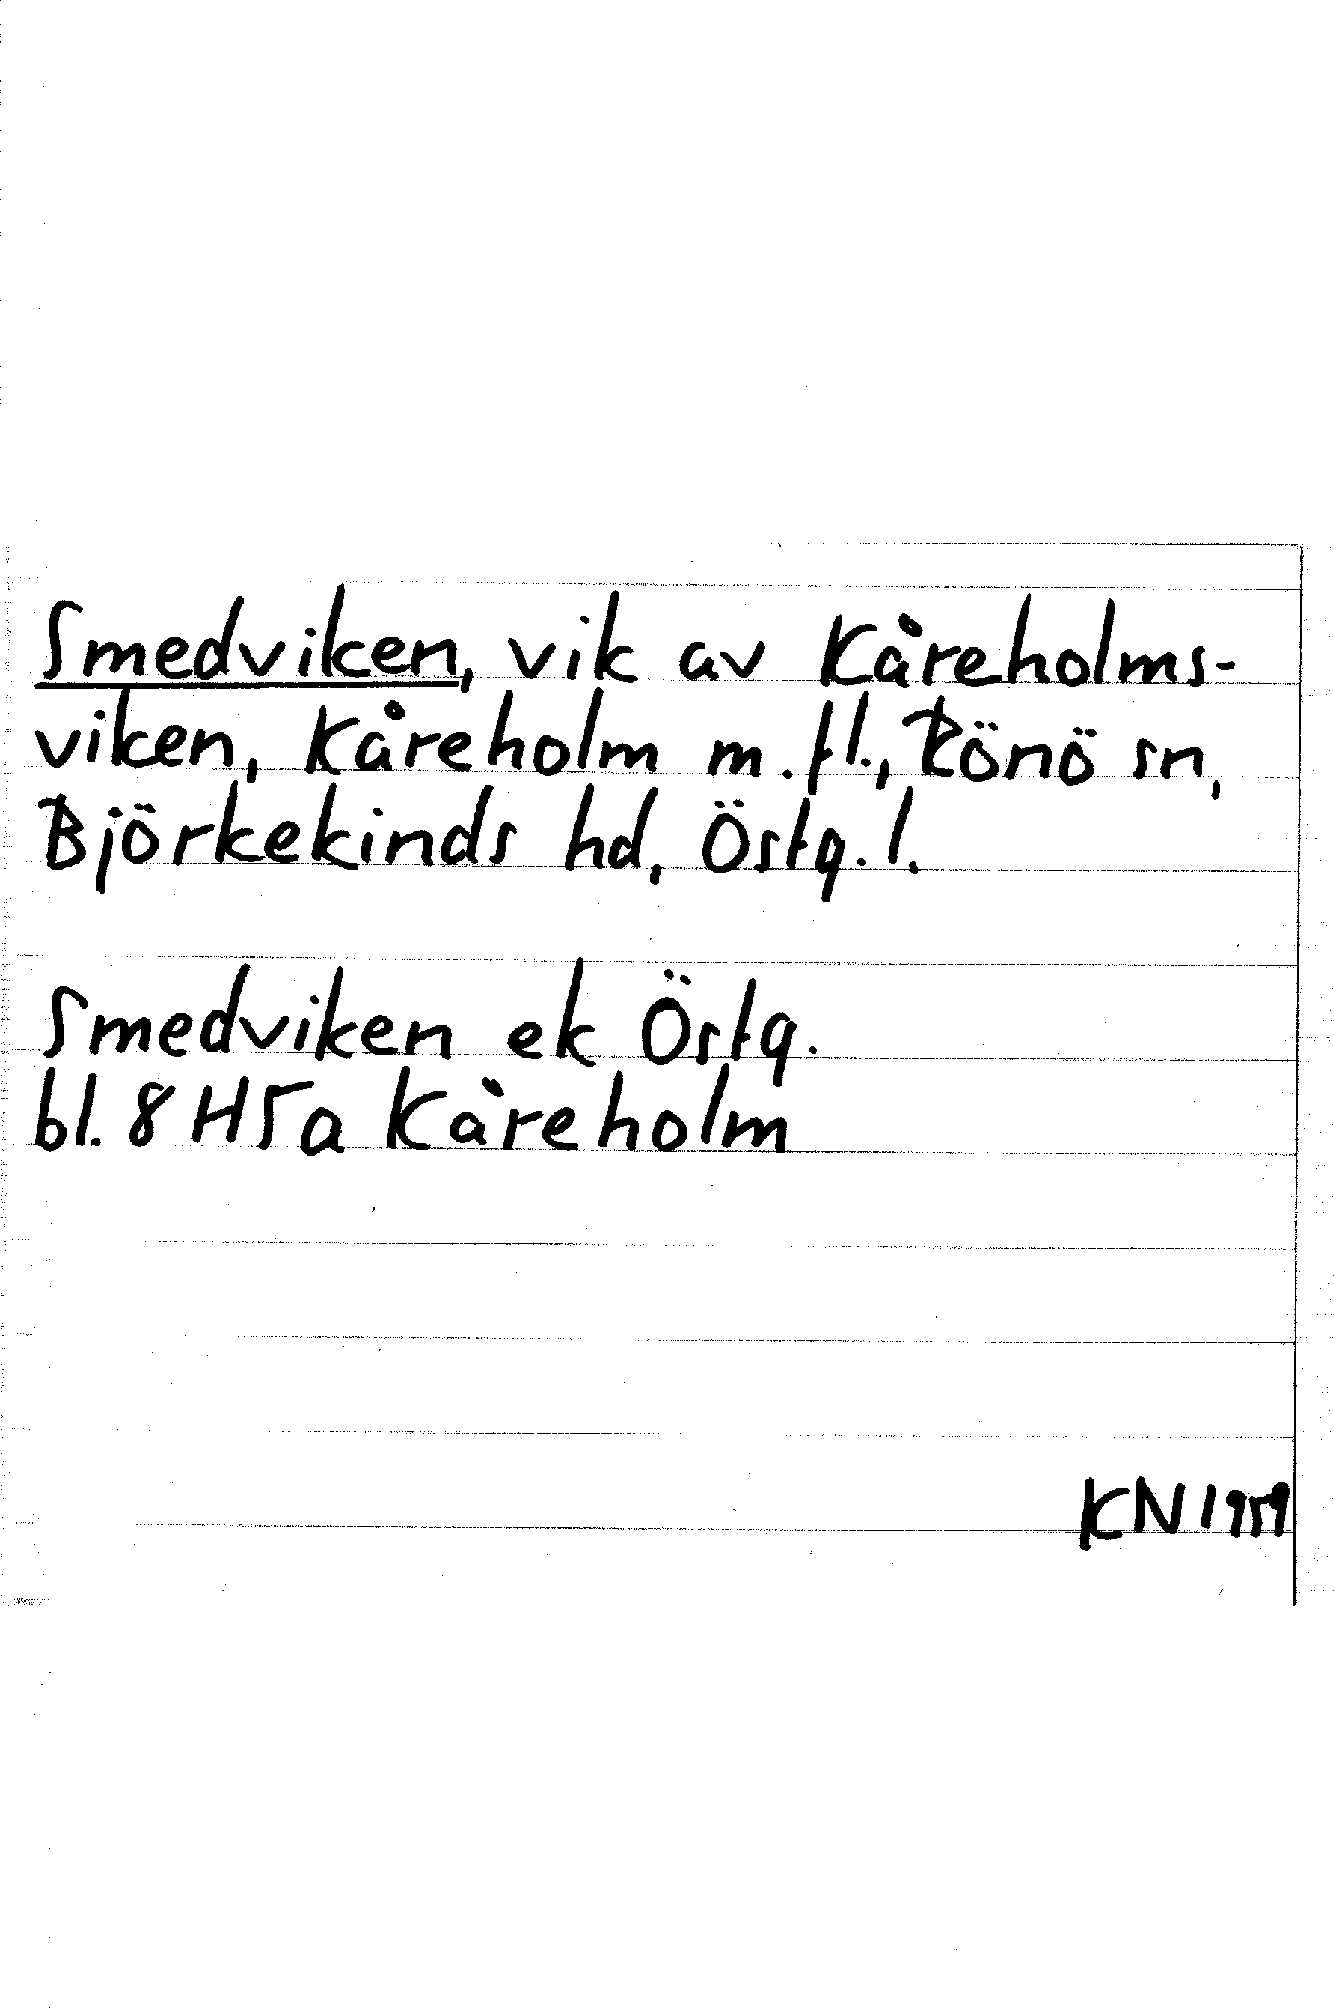 Smedviken, vik av Kåreholms-
viken, Kåreholm m.fl., Rönö sn,
Björkekinds hd, Östg.l.
Smedviken ek Östg.
bl. 8 H5a Kåreholm
KN 1959